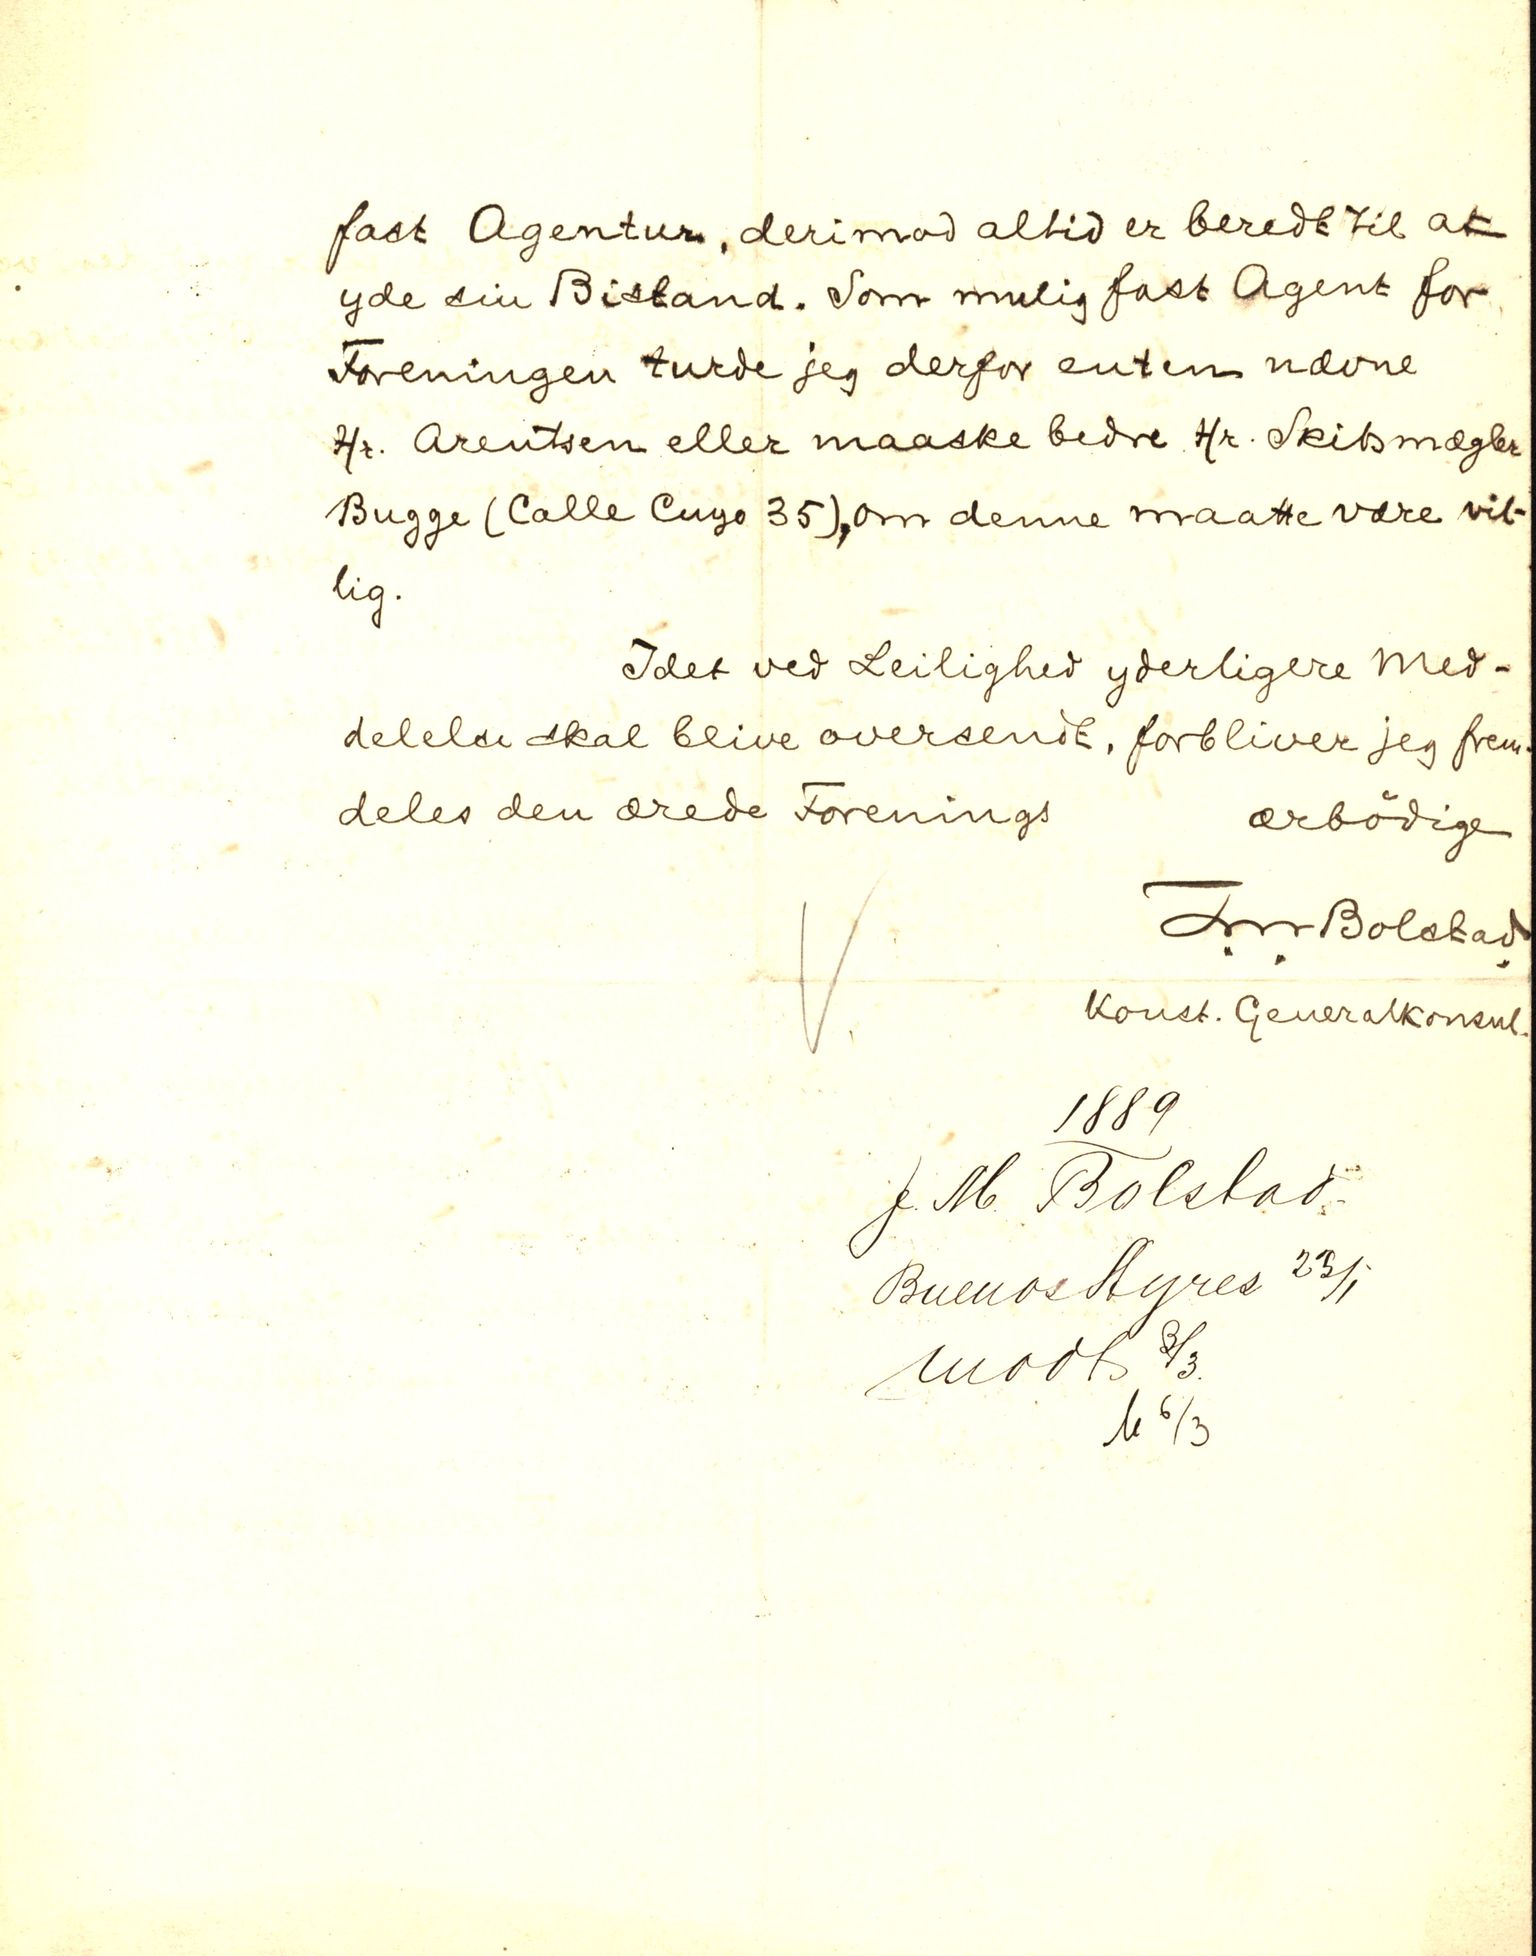 fast Agentur, derimod altid er beredt til at
yde sin Bistand. Som mulig fast Agent for
Foreningen turde jeg derfor enten nævne
Hr. Arentsen eller maaske bedre Hr. Skibsmægler
Bugge (Calle Cuyo 35), om denne maatte være vil-
lig.
Idet ved Leilighed yderligere Med-
delelse skal blive oversendt, forbliver jeg frem-
deles den ærede Forenings ærbödige
Bolstad
Konst. Generalkonsul.
1889
J. M. Bolstad
Buenos Ayres 23/1
modt 3/3.
6/3